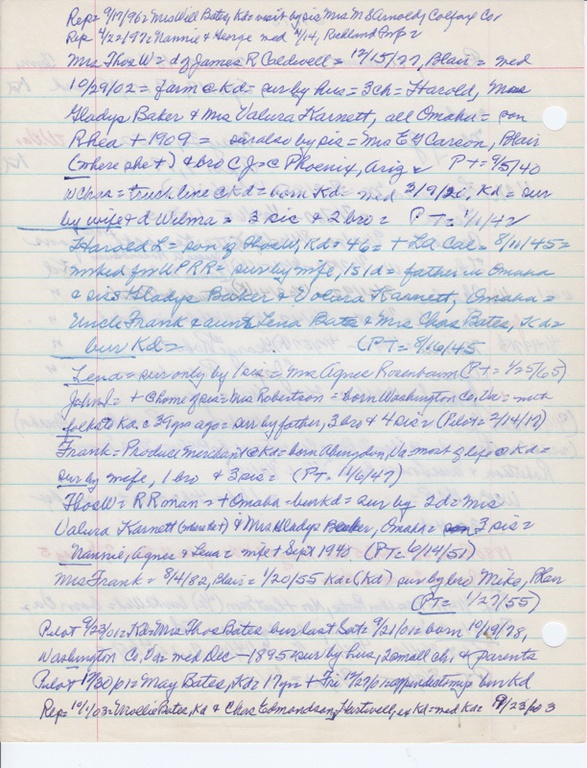 Rep= 9/17/96= Mrs Will Bates, Kd= visit by sis Mrs M S Arnold, Colfax Co=
Rep 4/22/97= Nannie & George med 4/14,
Mrs Thos W = d of James R Caldwell = 12/15/77, Blair = med
10/29/02 = farm @ Kd = sur by hus = 3 ch = Harold, Mrs
Gladys Baker & Mrs Valura Karnett, all Omaha = son
Rhea + 1909 = sur also by sis = Mrs E G Carson, Blair
(where she +) & bro C J = Phoenix, Ariz = PT = 9/5/40
W Chas = truck line @ Kd = born Kd = med 2/9/20, Kd = sur
by wife & d Wilma = 3 sis & 2 bro = PT = 1/1/42
Harold L = son of Thos W, Kd = 46 = + La Cal = 8/11/45 =
worked for UPRR = sur by wife, 1s 1d = father in Omaha
& sis Gladys Baker & Volora Karnett, Omaha =
Uncle Frank & aunts Lena Bates & Mrs Chas Bates, Kd =
bur Kd = (PT = 8/16/45
Lena = sur only by 1 sis = Mrs Agnes Rosenbaum (PT = 1/25/65)
John L = + @ home of sis = Mrs Robertson = born Washington Co, Va =
folks to Kd @ 39 yrs ago = sur by father, 3 bro & 4 sis = (Pilot = 2/14/17)
Frank = Produce merchant @ Kd = born Abingdon, Va = most of life @ Kd =
sur by wife, 1 bro & 3 sis = (PT = 11/6/47)
Thos W = RR man = + Omaha - bur Kd = sur by 2d = Mrs
Valura Karnett (where he +) & Mrs Gladys Baker, Omaha = 3 sis =
Nannie, Agnes & Lena = wife + Sept 1940 (PT = 6/14/51)
Mrs Frank = 8/4/82, Blair = 1/20/55 Kd = (Kd) sur by bro Mike, Blair
(PT = 1/27/55)
Pilot 9/23/01 = Kd = Mrs Thos Bates bur last Sat = 9/21/01 = born 10/19/78,
Washington Co, Va = med Dec - 1895 = sur by hus, 2 small ch, & parents
Pilot 12/30/01 = May Bates, Kd = 17 yrs + Fri 12/27/01 = bur Kd
Rep = 10/1/03 = Mollie Bates, Kd & Chas Edmondson, Hartwell, ex Kd = med Kd = 9/23/03